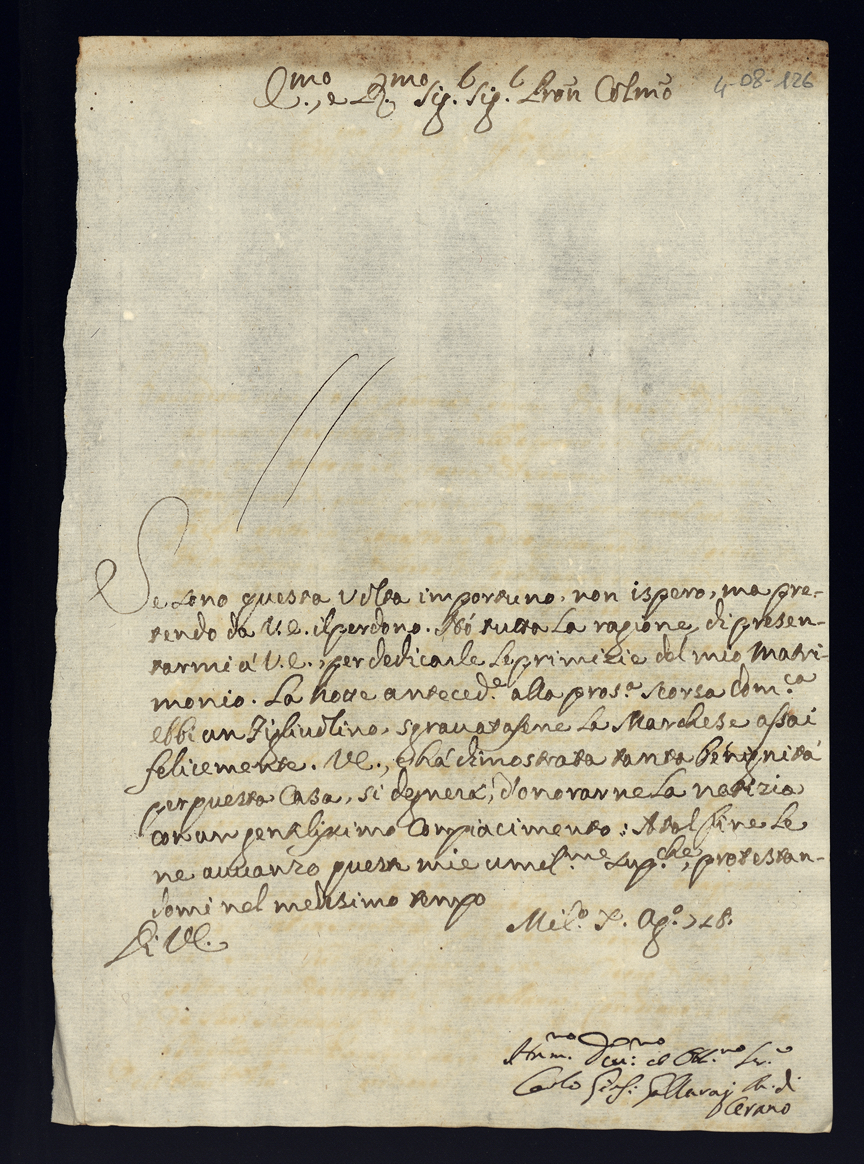 Ill.mo, e R.mo Sig. Sig. Pron Colmo 4-08-126
Se sono questa volta importuno, non ispero, ma pre-
tendo da V.E. il perdono. Hó tutta la ragione di presen-
tarmi á V.E., per dedicarle le primizie del mio Matri-
monio. La notte anteced.e alla pros.a scorsa Dom.ca
ebbi un Figliuolino, sgravatasene la Marchese assai
felicemente. VE., che há dimostrata tanta benignitá
per questa Casa, si degnerá, d'onorarne la notizia
con un gentilissimo Compiacimento: A tal fine le
ne avvanzo queste mie umil.me sup.che, protestan-
domi nel medesimo tempo
Di VE.
Mil.o Ag.o 748.
Hum.mo Dev.mo ed Obl.mo Ser.e
Carlo Gius. Gallarati M. di
Cerano